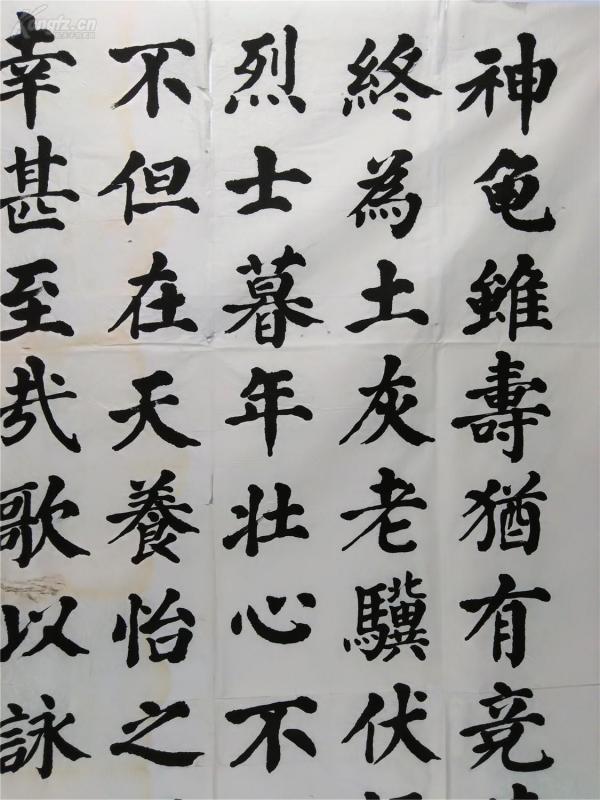 神龟雖壽猶有竟
終為土灰老驥伏
烈士暮年壮心不
不但在天養怡之
幸甚至哉歌以詠
Kongfz.cn